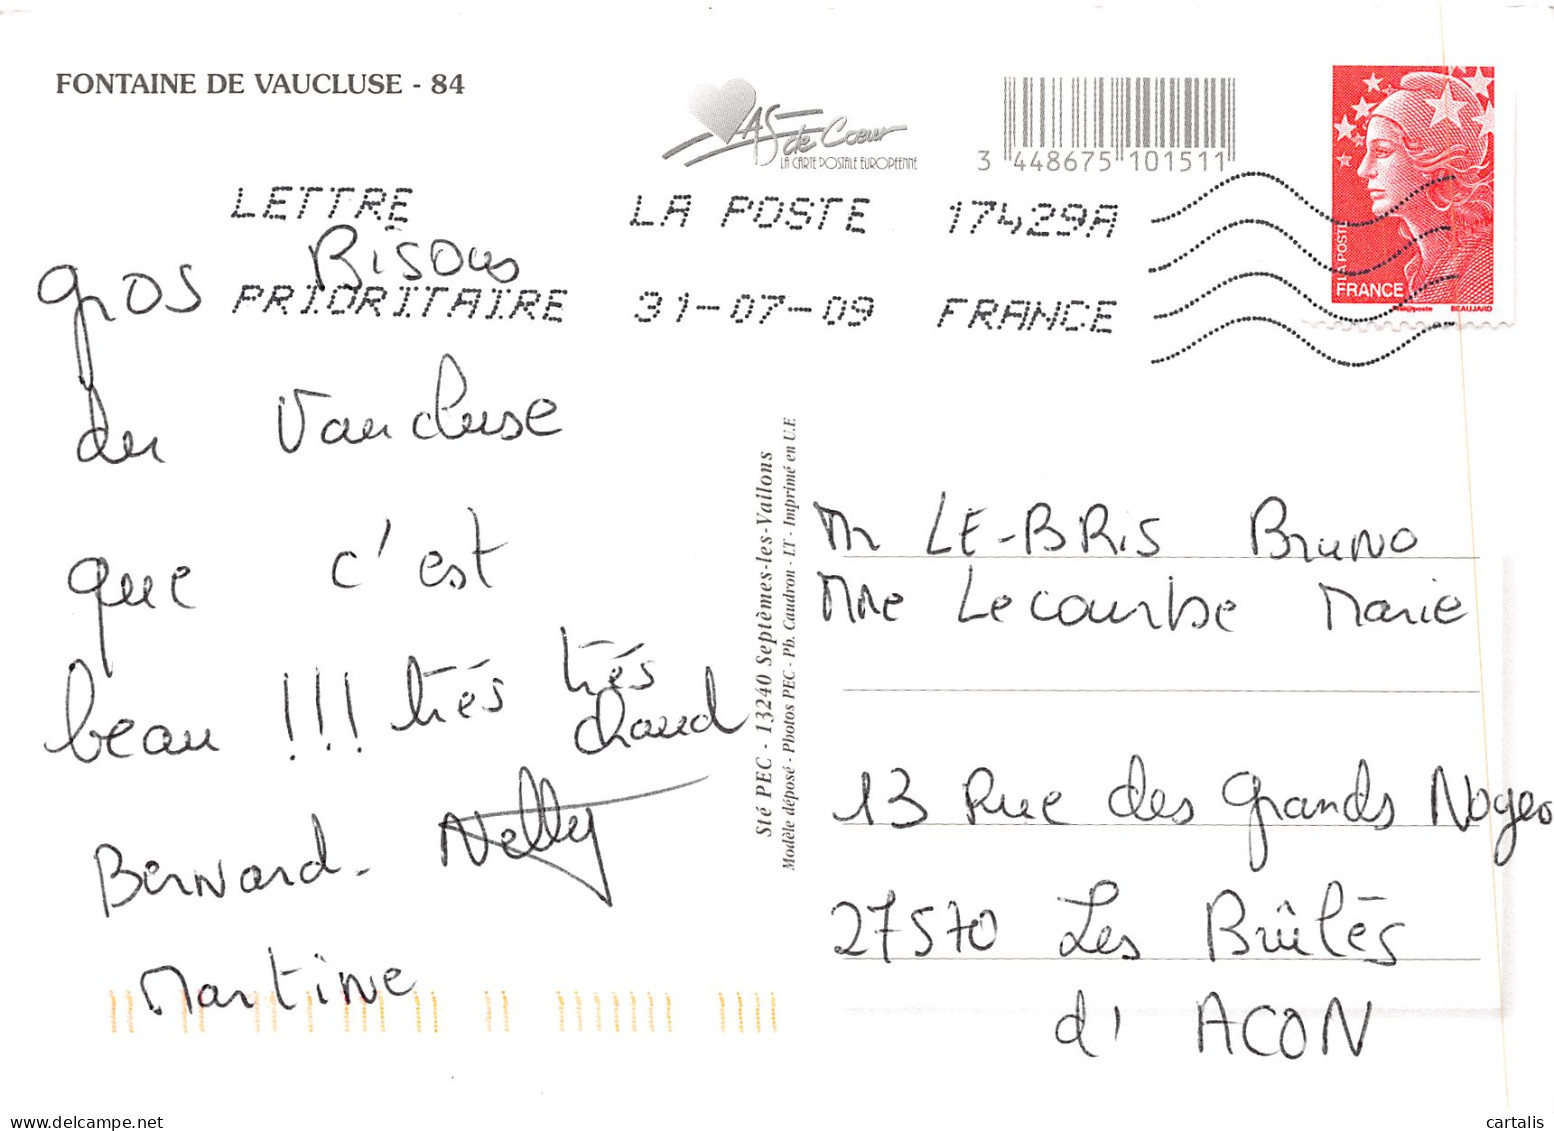 FONTAINE DE VAUCLUSE - 84
AS de Coeur
LA CARTE POSTALE EUROPEENNE
3 448675 101511
LETTRE
PRIORITAIRE
LA POSTE
31-07-09
17429A
FRANCE
LA POSTE
FRANCE
BEAUJARD
Gros Bisous
du Vaucluse
que c'est
beau !!! très très
chaud
Bernard - Nelly
Martine
Sté PEC - 13240 Septèmes-les-Vallons
Modèle déposé - Photos PEC - Ph. Caudron - LT - Imprimé en U.E
Mr LE-BRIS Bruno
Mme Lecourbe Marie
13 Rue des Grands Noyers
27570 Les Brûlés
d' ACON
cartalis